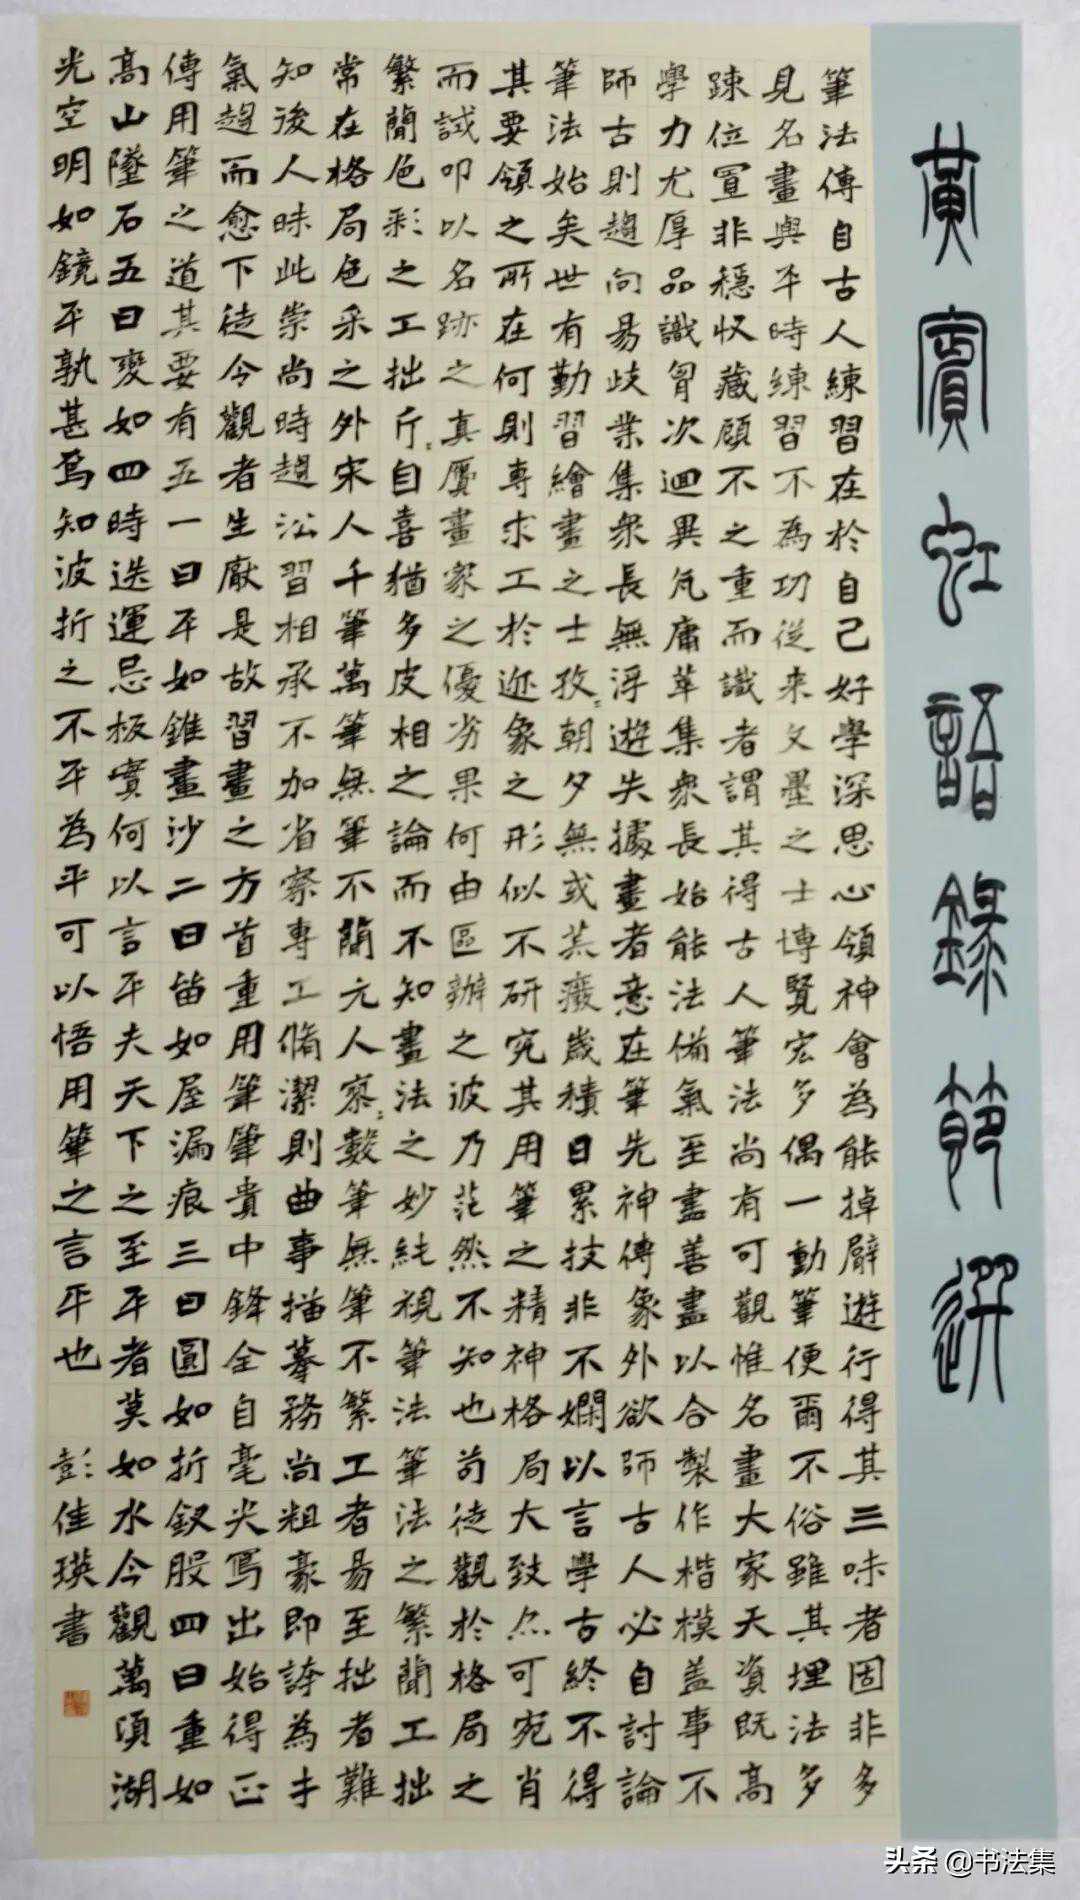 黃賓虹語錄節選
筆法傳自古人練習在於自己好學深思心領神會為能掉臂遊行得其三味者固非多
見名畫與平時練習不為功從來文墨之士博覽宏多偶一動筆便爾不俗雖其埋法多
踈位置非穩收藏顧不之重而識者謂其得古人筆法尚有可觀惟名畫大家天資既高
學力尤厚品識胷次迴異凡庸萃集衆長始能法備氣至盡善盡以合製作楷模盖事不
師古則趨向易歧業集衆長無浮遊失據畫者意在筆先神傳象外欲師古人必自討論
筆法始矣世有勤習繪畫之士孜々朝夕無或荒癈歲積日累技非不嫻以言學古終不得
其要領之所在何則專求工於迹象之形似不研究其用筆之精神格局大致尒可宛肖
而試叩以名跡之真贋畫家之優劣果何由區辦之波乃茫然不知也苟徒觀於格局之
繁簡色彩之工拙斤々自喜猶多皮相之論而不知畫法之妙純視筆法筆法之繁簡工拙
常在格局色采之外宋人千筆萬筆無筆不簡元人寥々數筆無筆不繁工者易至拙者難
知後人昧此崇尚時趨沿習相承不加省察專工脩潔則曲事描摹務尚粗豪即誇為才
氣趨而愈下徒令觀者生厭是故習畫之方首重用筆筆貴中鋒全自毫尖寫出始得正
傳用筆之道其要有五一曰平如錐畫沙二曰畱如屋漏痕三曰圓如折釵股四曰重如
高山墬石五曰變如四時迭運忌板實何以言平夫天下之至平者莫如水今觀萬頃湖
光空明如鏡平孰甚焉知波折之不平為平可以悟用筆之言平也
彭佳瑛書
头条 @书法集